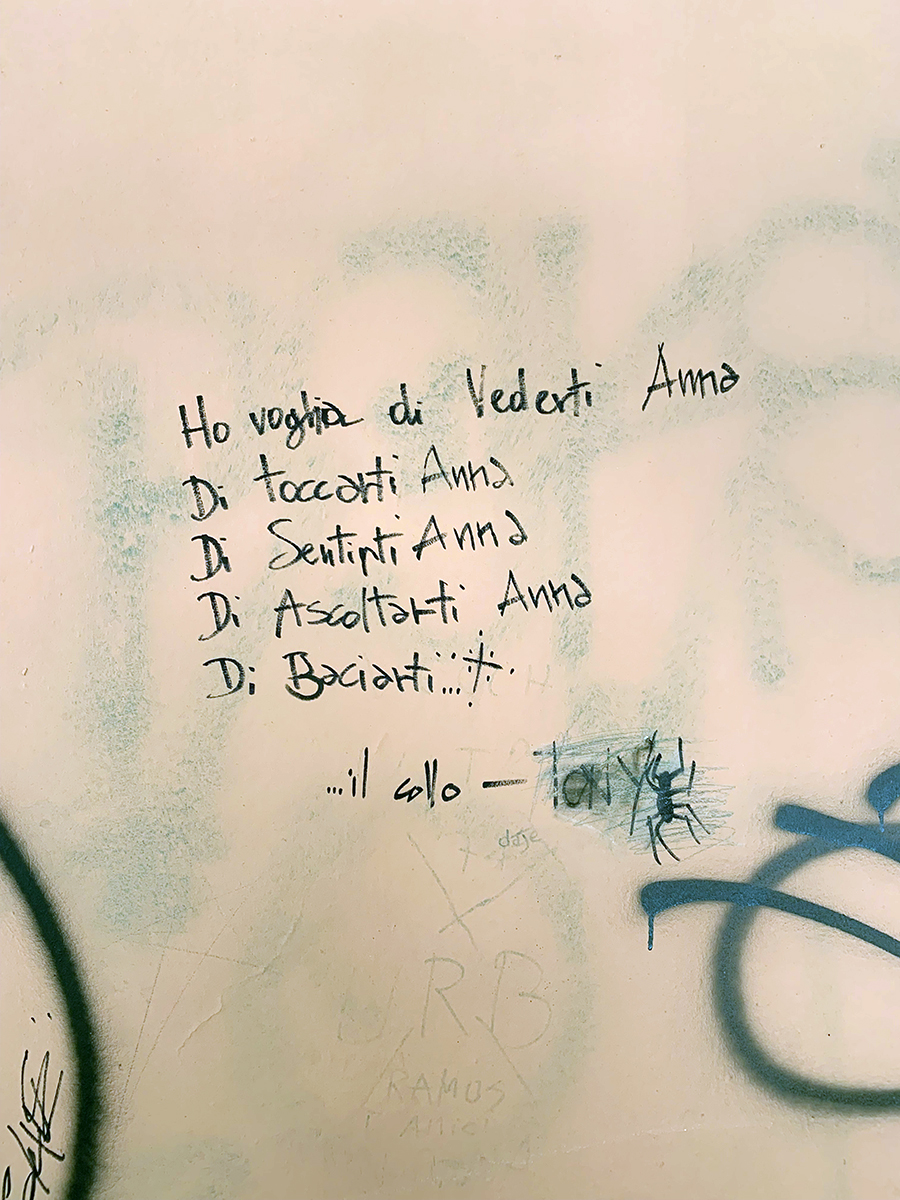 Ho voglia di Vederti Anna
Di toccarti Anna
Di Sentirti Anna
Di Ascoltarti Anna
Di Baciarti...
...il collo — Tony
daje
URB
RAMOS
Amici